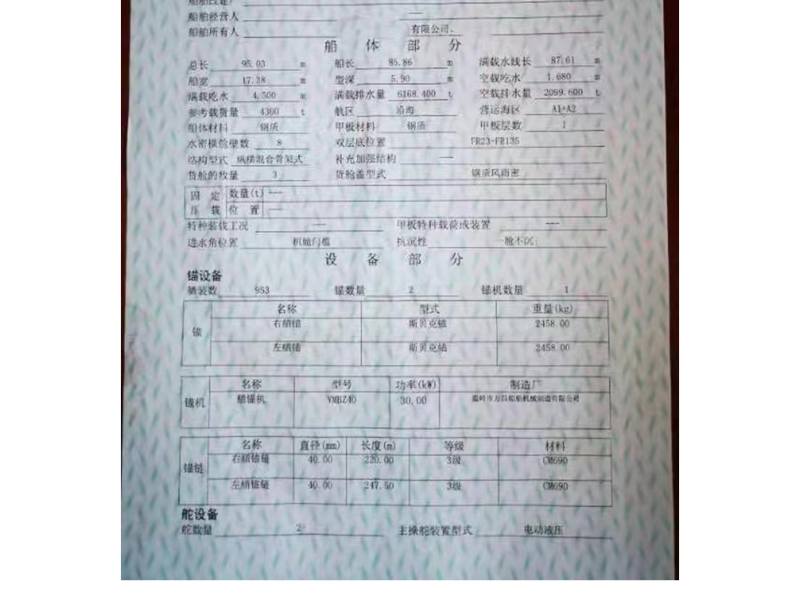 船舶改建厂
船舶经营人 —
船舶所有人 有限公司.
船 体 部 分
总长 95.03 m 船长 85.86 m 满载水线长 87.61 m
船宽 17.38 m 型深 5.90 m 空载吃水 1.680 m
满载吃水 4.500 m 满载排水量 6168.400 t 空载排水量 2099.600 t
参考载货量 4300 t 航区 沿海 营运海区 A1+A2
船体材料 钢质 甲板材料 钢质 甲板层数 1
水密横舱壁数 8 双层底位置 FR23-FR135
结构型式 纵横混合骨架式 补充加强结构 —
货舱的数量 3 货舱盖型式 钢质风雨密
固定 数量(t) —
压载 位置 —
特种装载工况 — 甲板特种载荷或装置 —
进水角位置 机舱门槛 抗沉性 一舱不沉
设 备 部 分
锚设备
舾装数 953 锚数量 2 锚机数量 1
名称 型式 重量(kg)
锚 右艏锚 斯贝克锚 2458.00
左艏锚 斯贝克锚 2458.00
名称 型号 功率(kW) 制造厂
锚机 艏锚机 YMBZ40 30.00
名称 直径(mm) 长度(m) 等级 材料
锚链 右艏锚链 40.00 220.00 3级 CM690
左艏锚链 40.00 247.50 3级 CM690
舵设备
舵数量 2 主操舵装置型式 电动液压